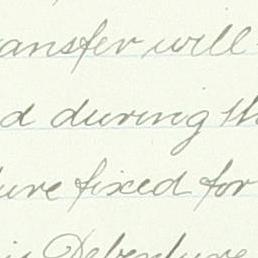 ransfer will
d during th
ure fixed for
is Debenture